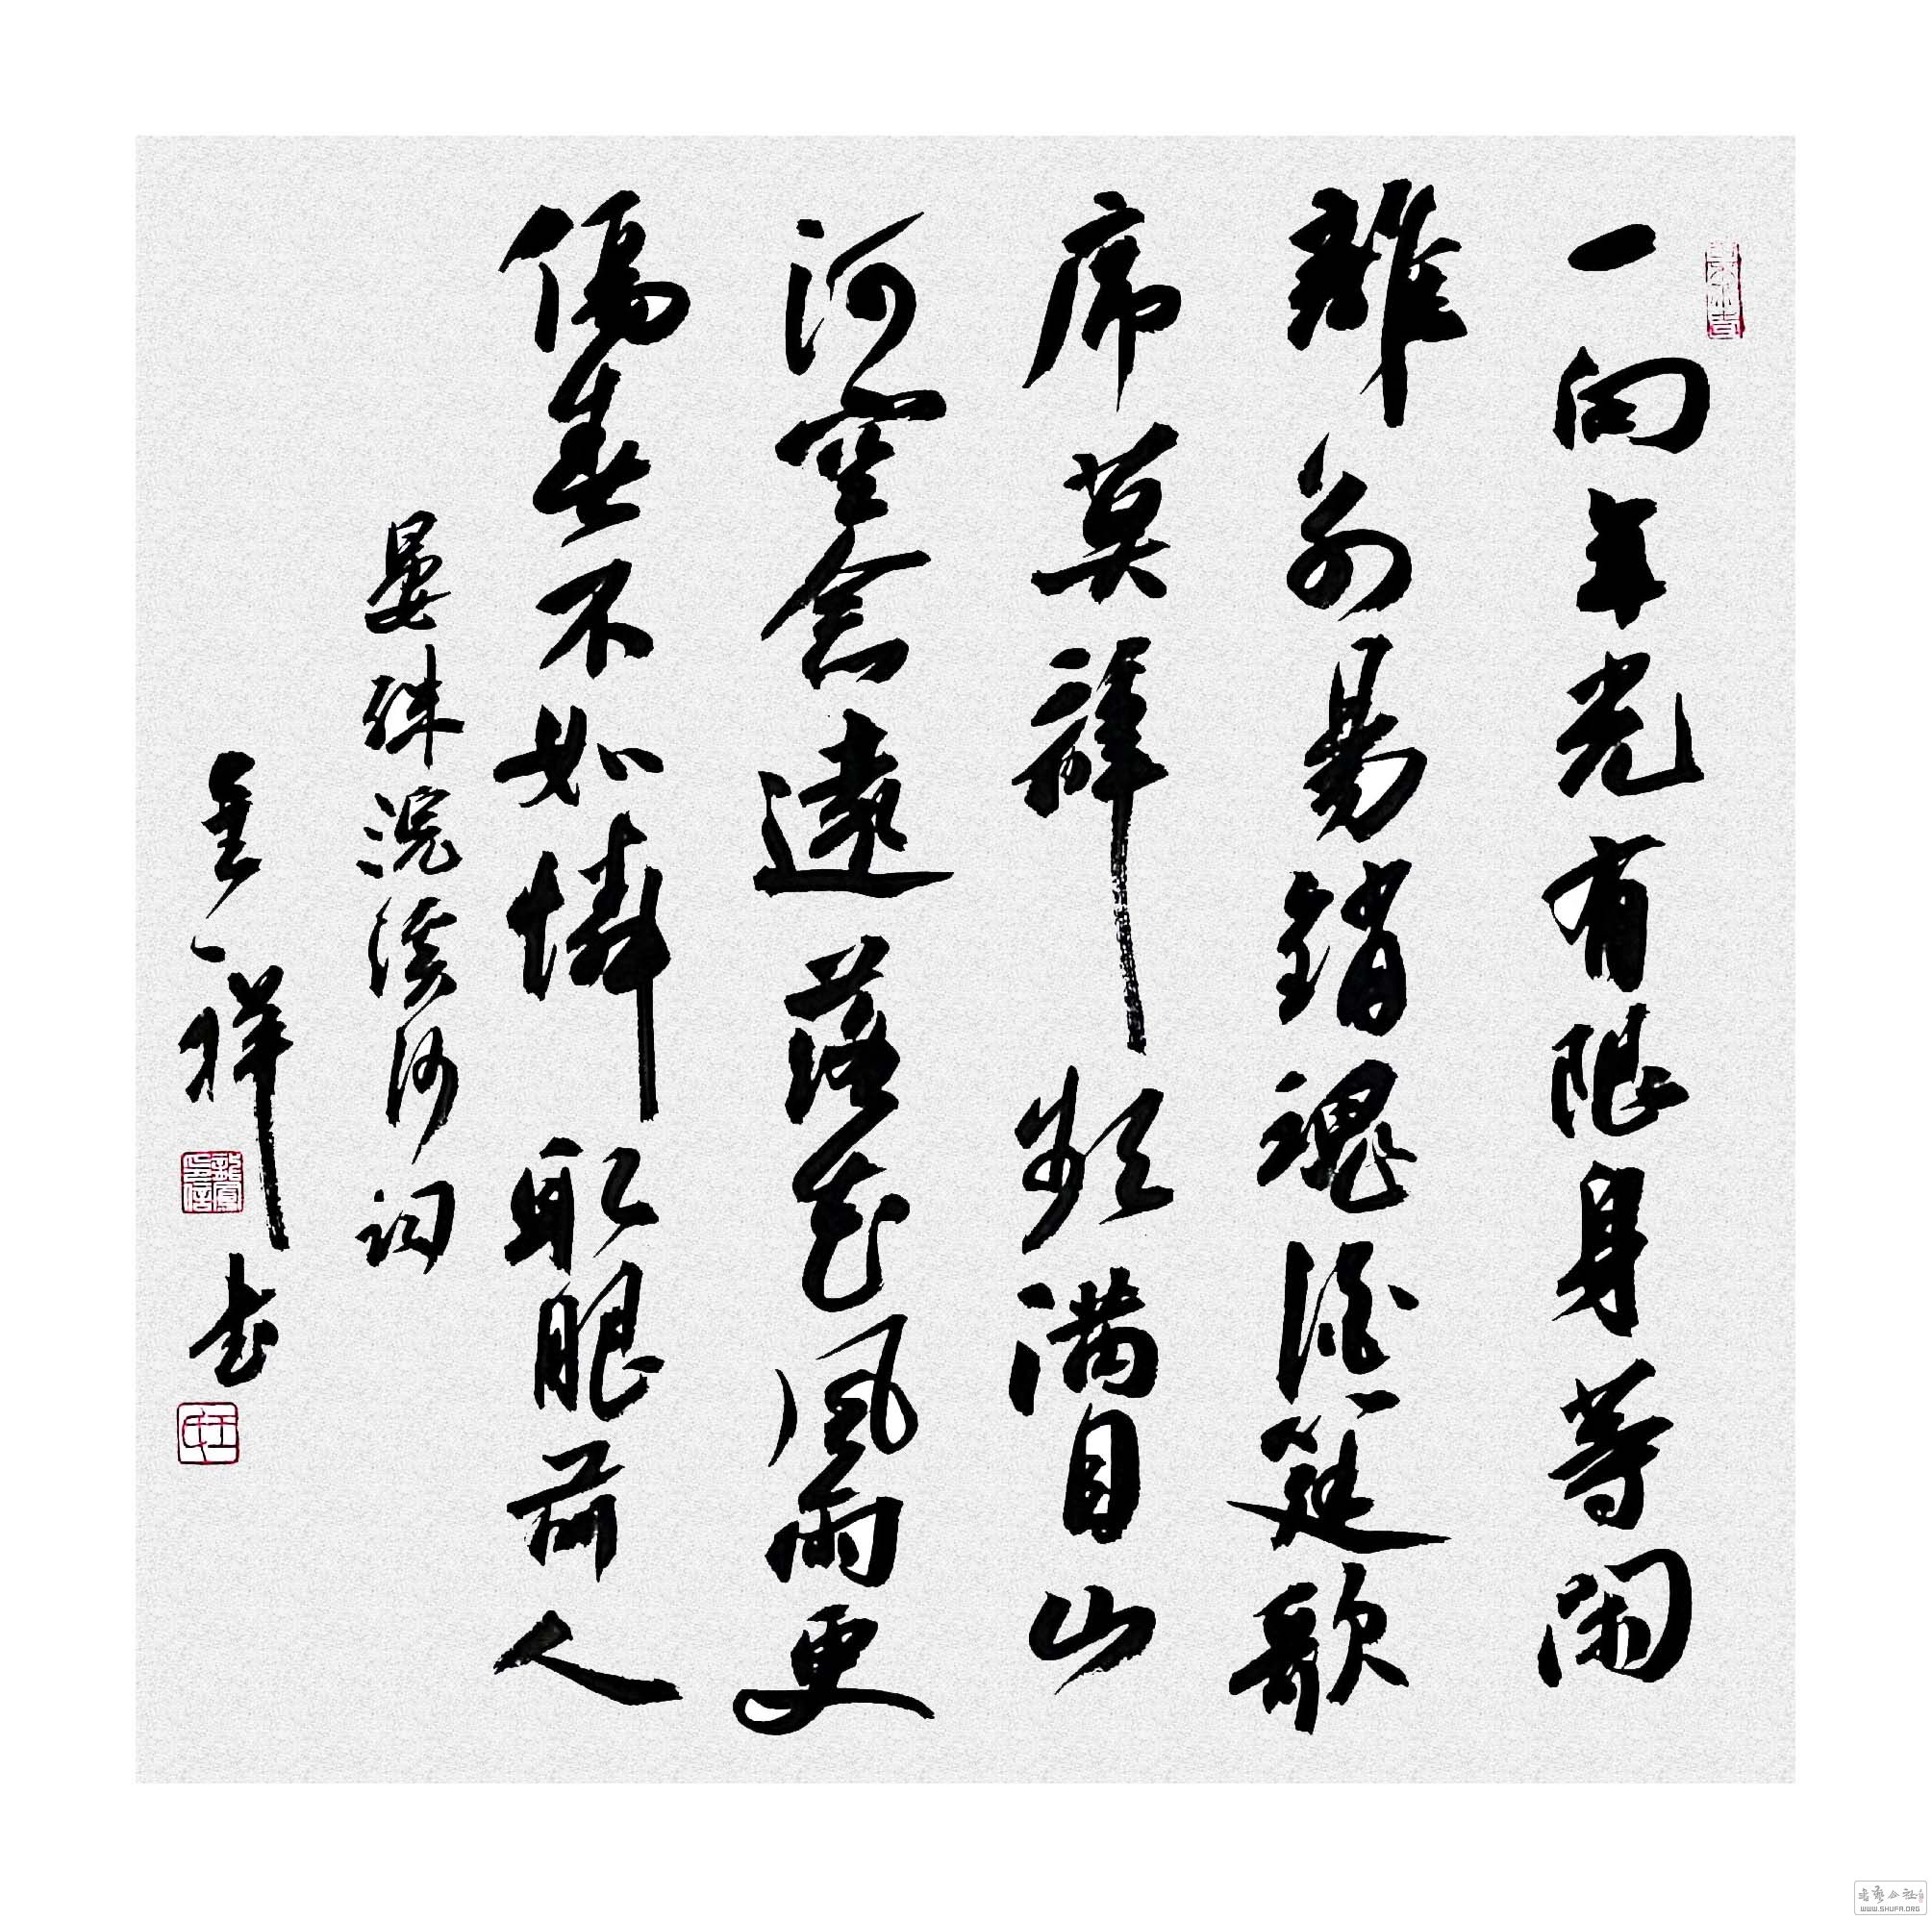 一向年光有限身等闲
離别易銷魂酒筵歌
席莫辭頻满目山
河空念遠落花風雨更
傷春不如憐取眼前人
晏殊浣溪沙词
祥书
王氏
WWW.SHUFA.ORG